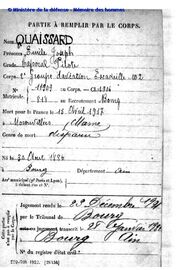 © Ministère de la défense - Mémoire des hommes
PARTIE À REMPLIR PAR LE CORPS.
Nom QUAISSARD
Prénoms Emile Joseph
Grade Caporal Pilote
Corps 2e Groupe d'aviation Escadrille 102
N° 11909 au Corps. — Cl. 1904
Matricule. 818 au Recrutement Bourg
Mort pour la France le 15 Avril 1917
à Marne
Genre de mort disparu
Né le 30 Août 1884
à Bourg Département Ain
Arr' municipal (pr Paris et Lyon),
à défaut rue et N°.
Jugement rendu le 23 Décembre
par le Tribunal de Bourg
transcrit le 28
à Bourg Ain
N° du registre d'état civil